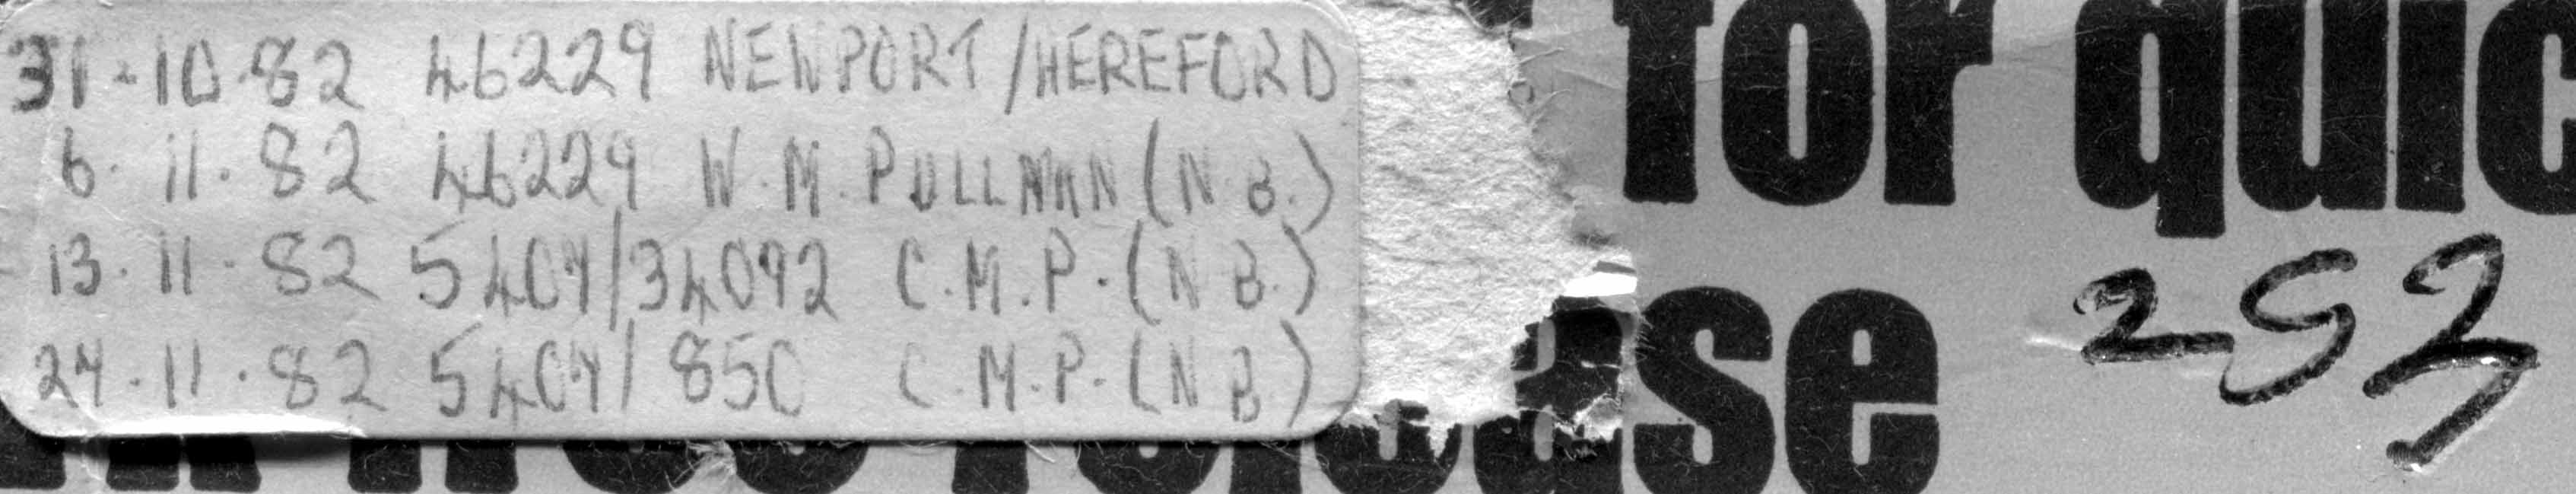 31-10-82 46229 NEWPORT/HEREFORD
6. 11. 82 46229 W.M. PULLMAN (N.B.)
13. 11. 82 5407/34092 C.M.P. (N B.)
27. 11. 82 5407/850 C.M.P. (N B)
for quic
release